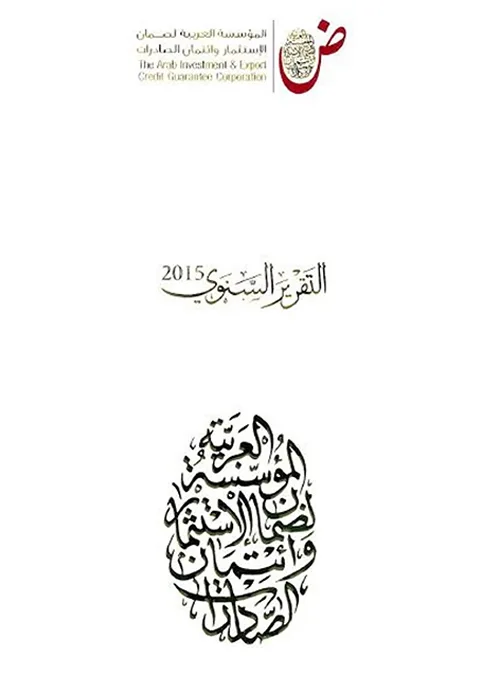 المؤسسة العربية لضمان
الإستثمار وائتمان الصادرات
The Arab Investment & Export
Credit Guarantee Corporation
ض
التقرير السنوي 2015
العربية
المؤسسة
لضمان الاستثمار
وائتمان
الصادرات